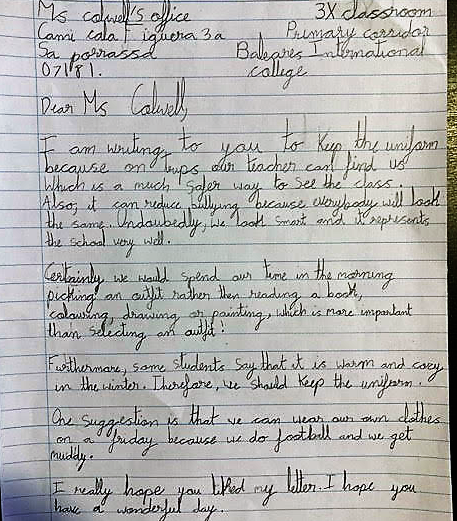 Ms colwell's office 3X classroom
Cami cala Figuera 3a Primary corridor
Sa porrassa Baleares International
07181. college
Dear Ms Colwell,
I am writing to you to keep the uniform
because on trips our teacher can find us
which is a much safer way to see the class.
Also, it can reduce bullying because everybody will look
the same. Undoubedly, we look smart and it represents
the school very well.
Certainly we would spend our time in the morning
picking an outfit rather then reading a book,
colouring, drawing or painting, which is more important
than selecting an outfit!
Furthermore, some students say that it is warm and cozy
in the winter. Therefore, we should keep the uniform.
One suggestion is that we can wear our own clothes
on a friday because we do football and we get
muddy.
I really hope you liked my letter. I hope you
have a wonderful day.